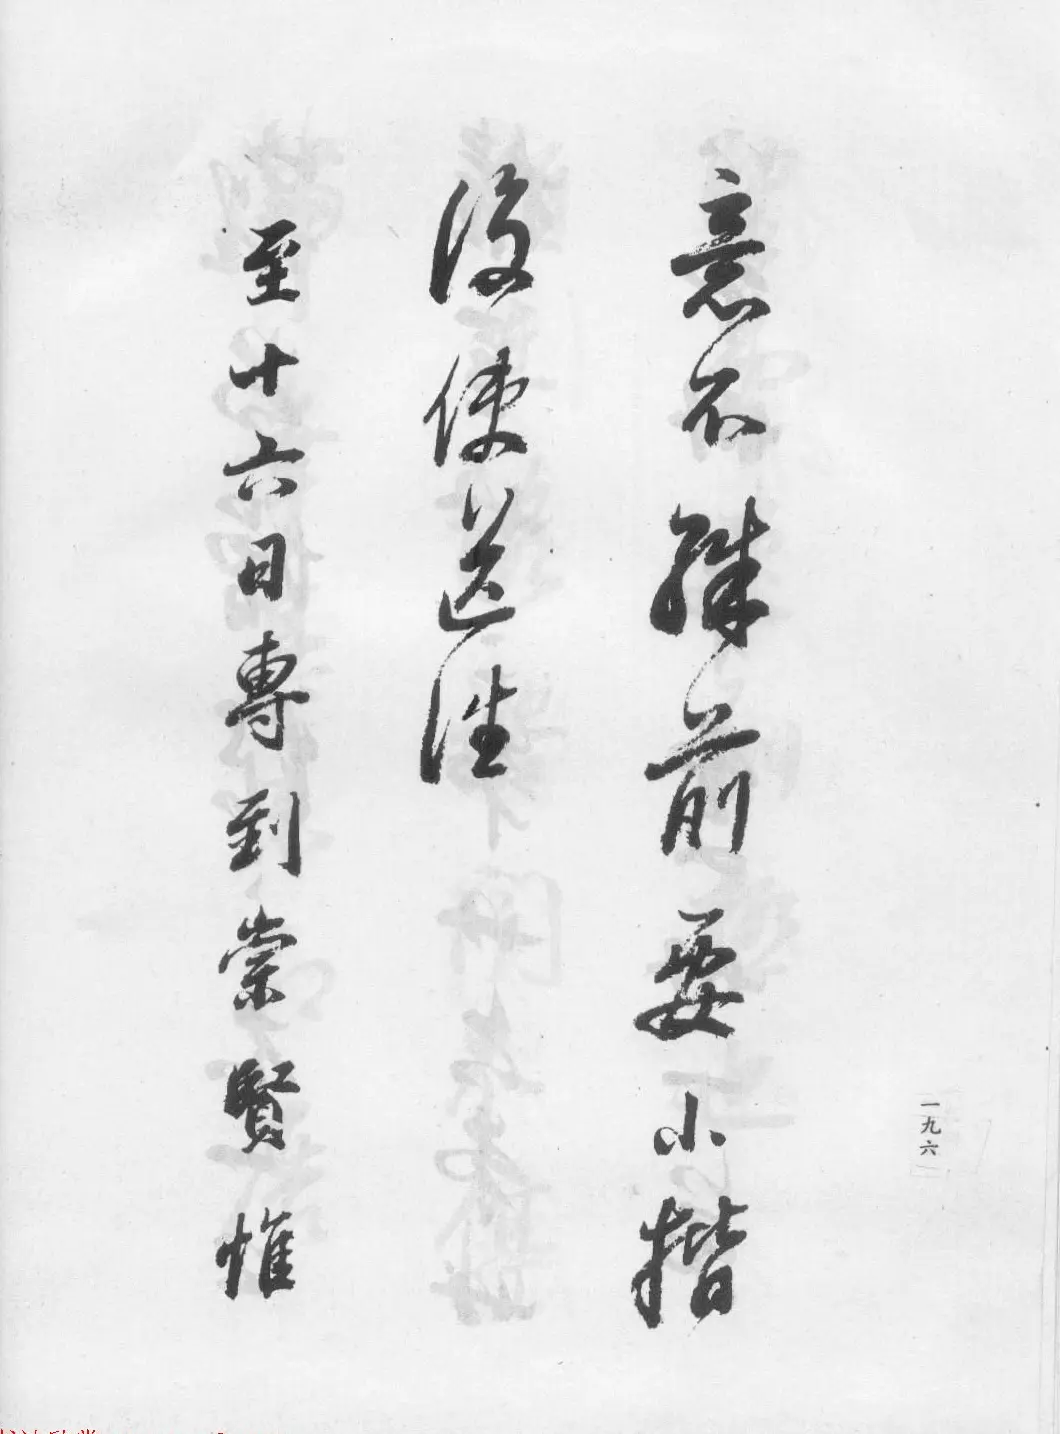 意不殊前要小楷
後使送往
至十六日專到崇賢惟
一九六